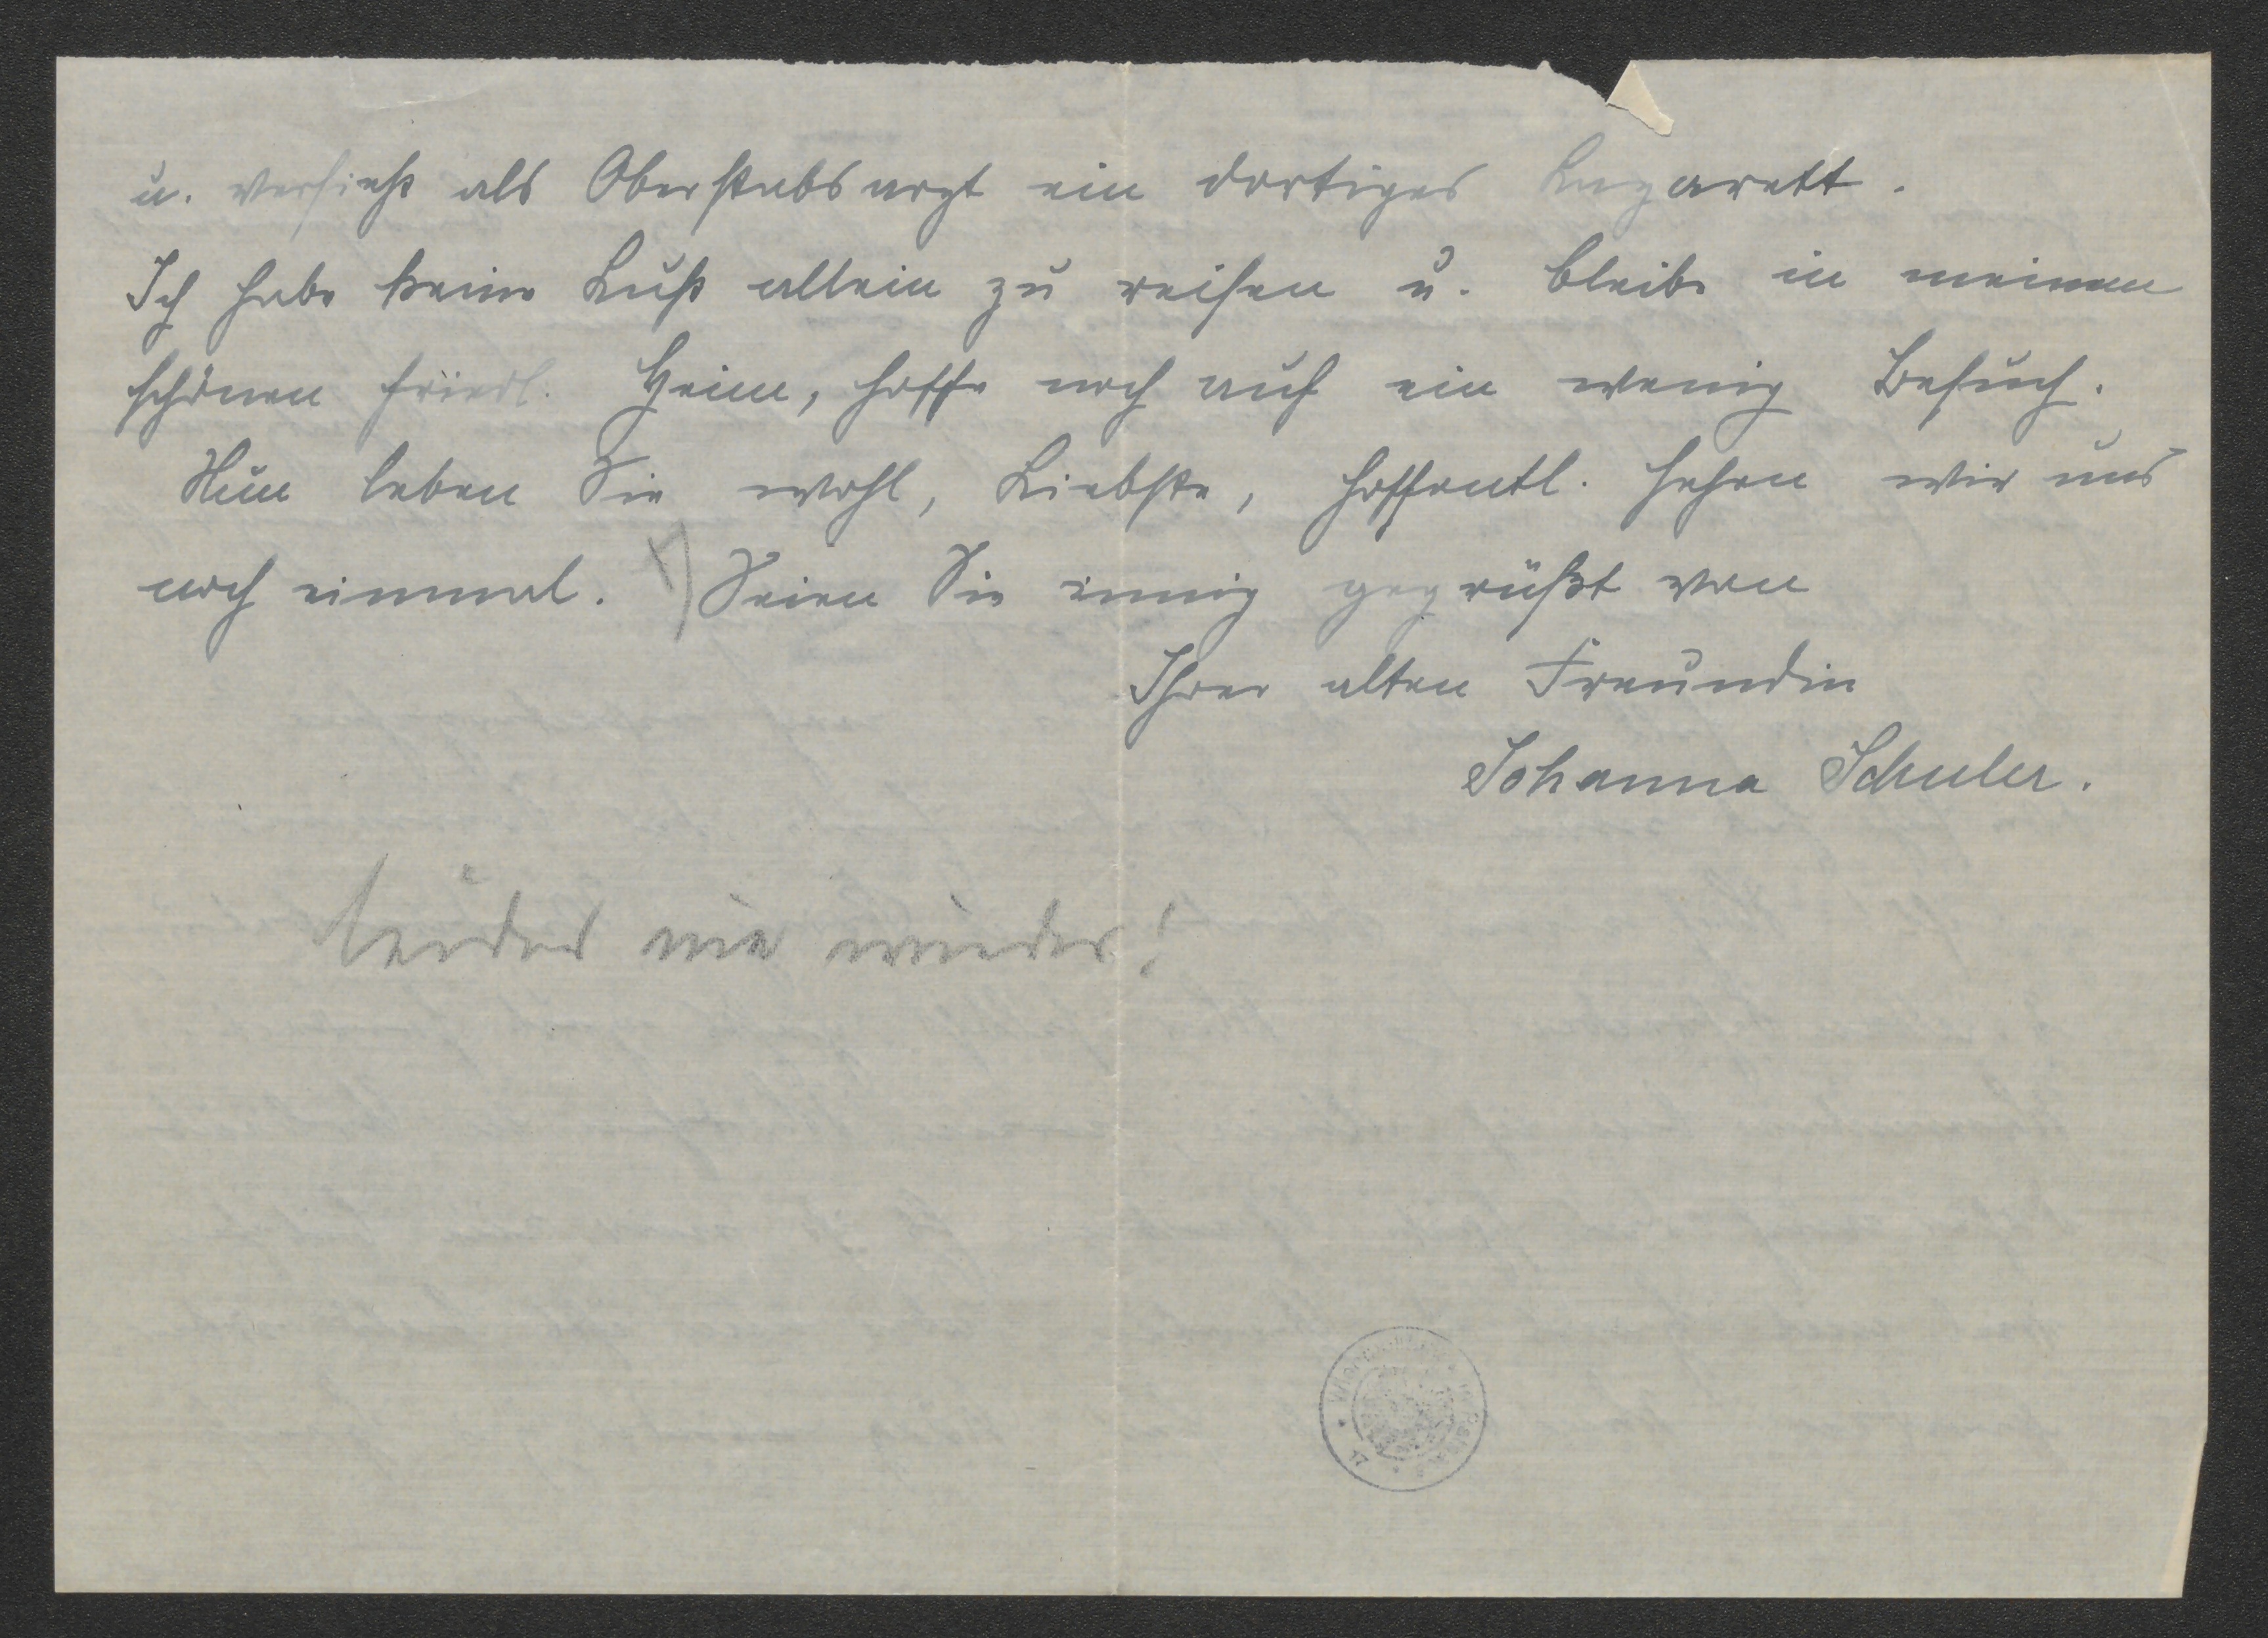 u. versieht als Oberstabsarzt ein dortiges Lazarett.
Ich habe keine Lust allein zu reisen u. bleibe in meinem
schönen friedl. Heim, hoffe noch auf ein wenig Besuch.
Nun leben Sie wohl, Liebste, hoffentl. sehen wir uns
noch einmal. Seien Sie innig gegrüßt von
Ihrer alten Freundin
Johanna Schuler.
leider nie wieder!